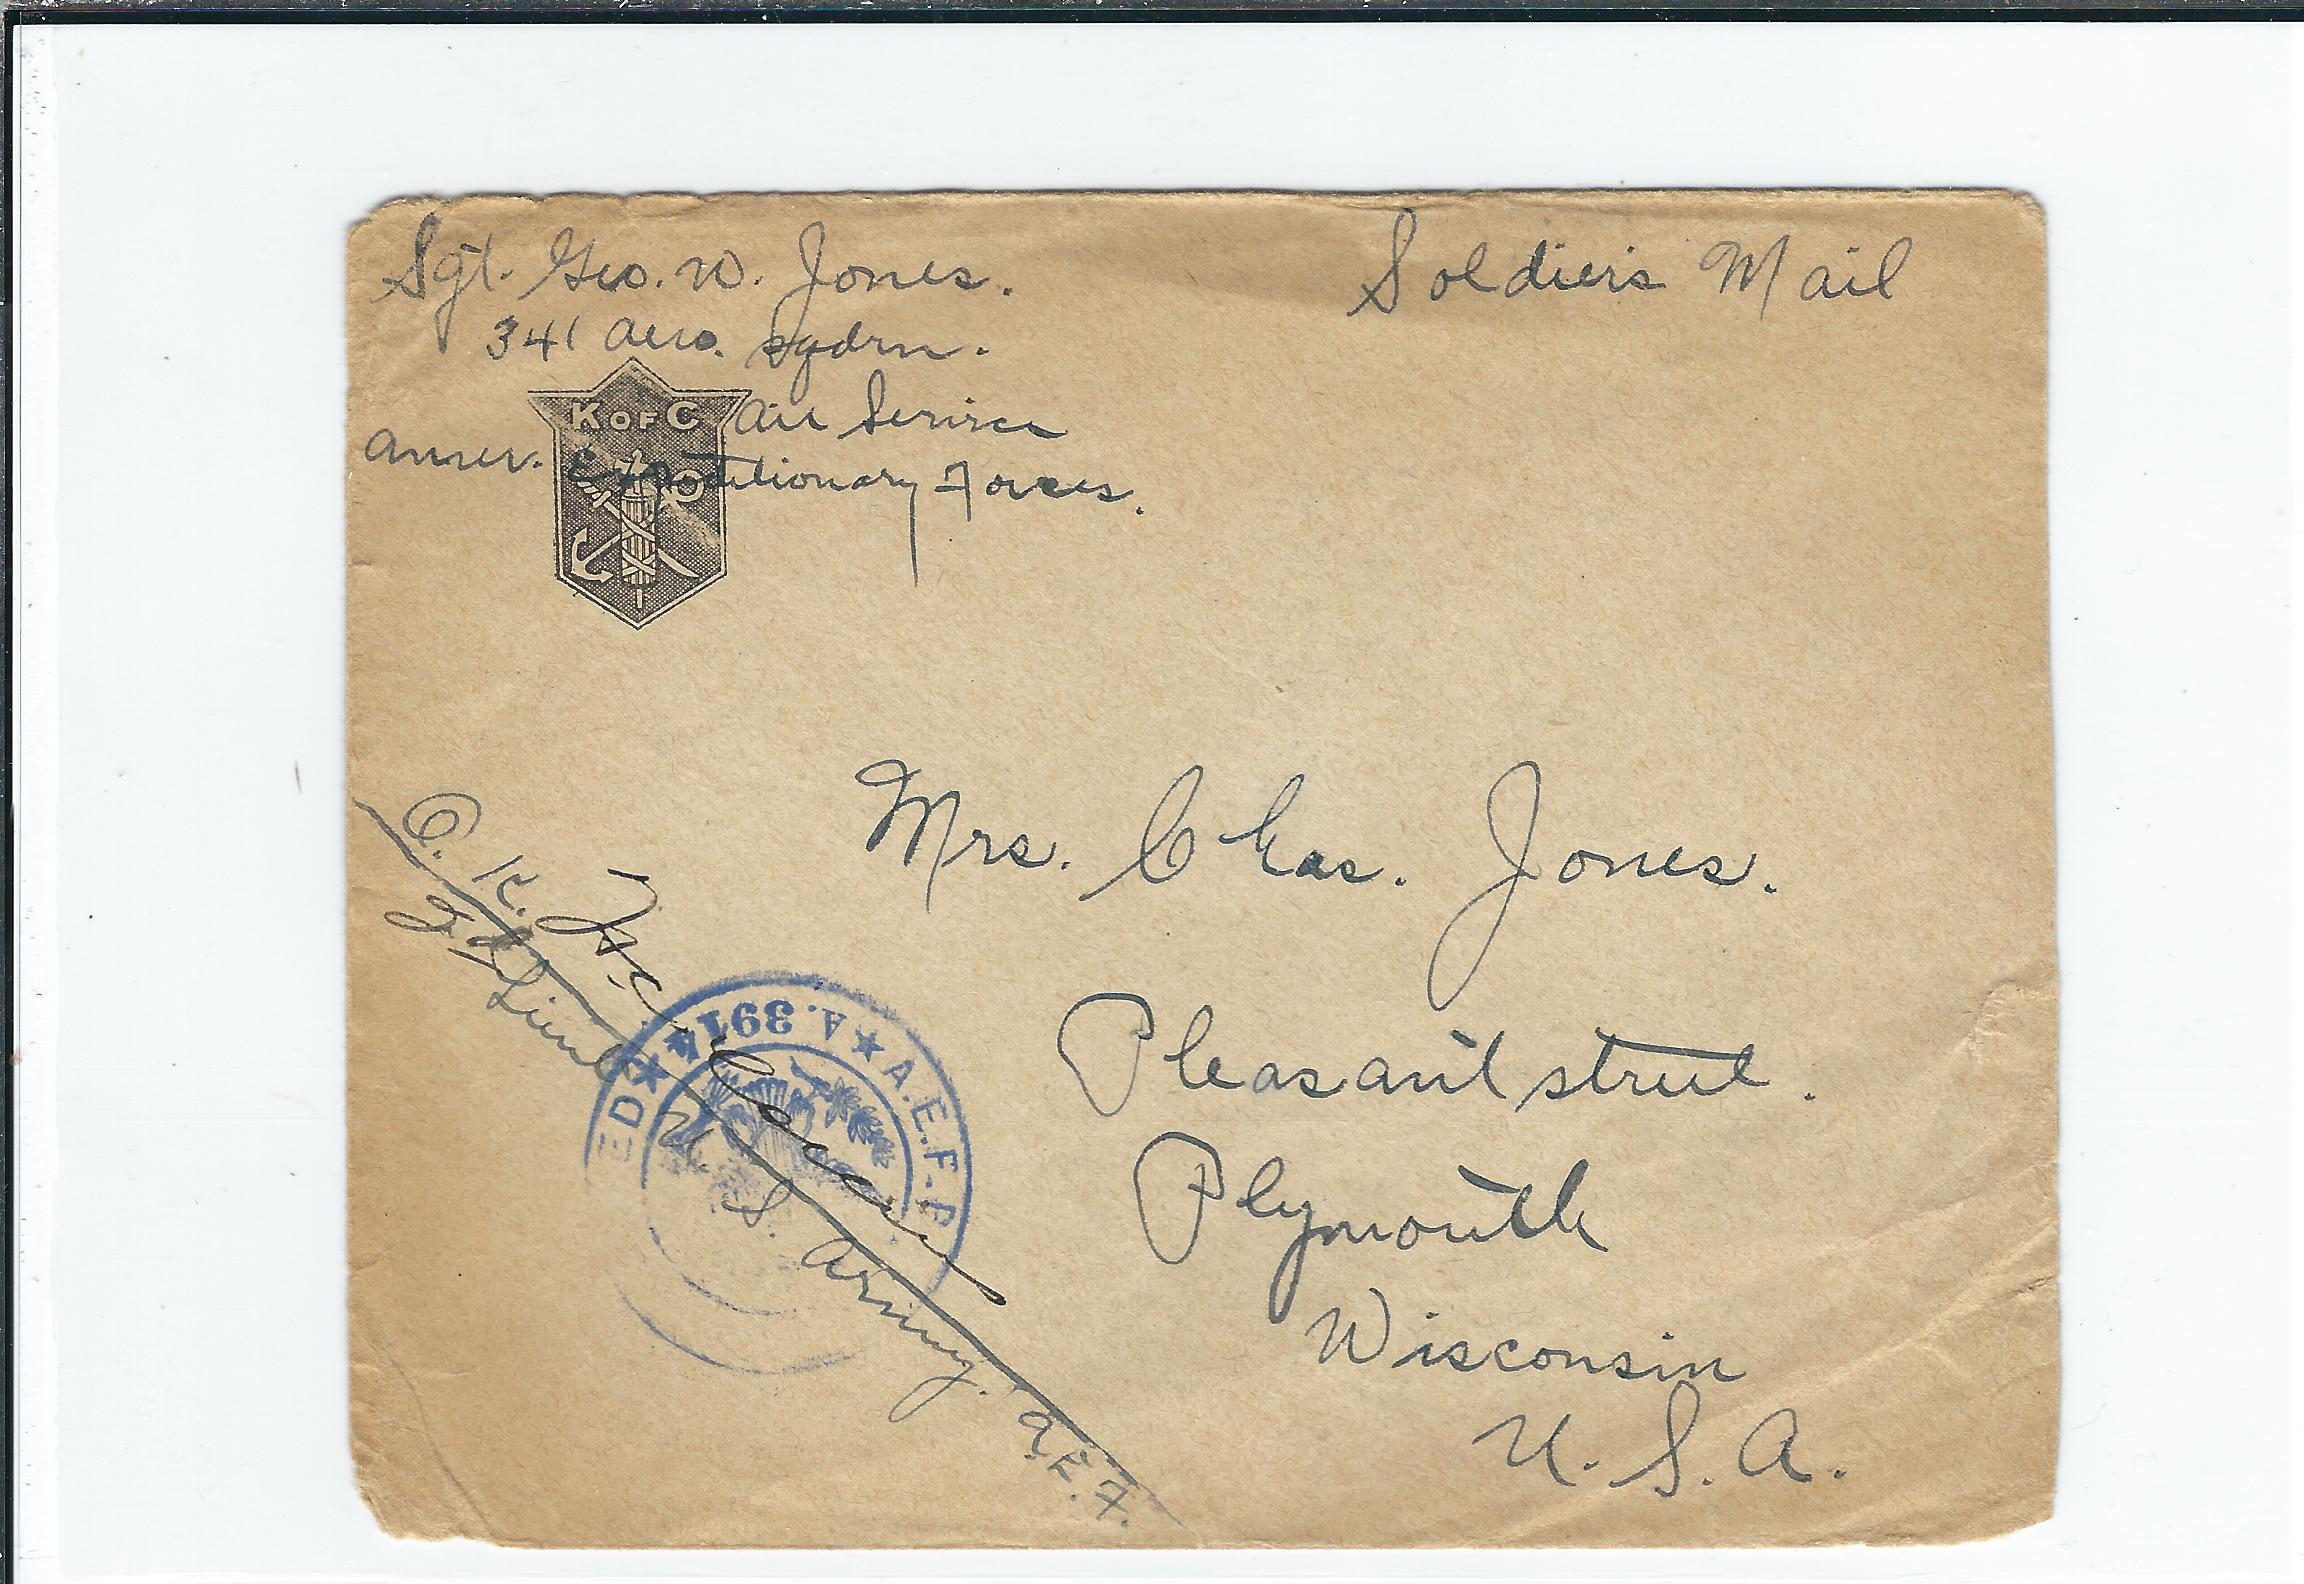 Sgt. Geo. W. Jones.
Soldiers Mail
341 aero. sqdrn.
K OF C
Air Service
Amer. Expeditionary Forces.
Mrs. Chas. Jones.
Pleasant street.
Plymouth
Wisconsin
U. S. A.
O. K.
2d Lieut U. S. Army. A. E. F.
ED ★ A. 3914 ★ A.E.F.F